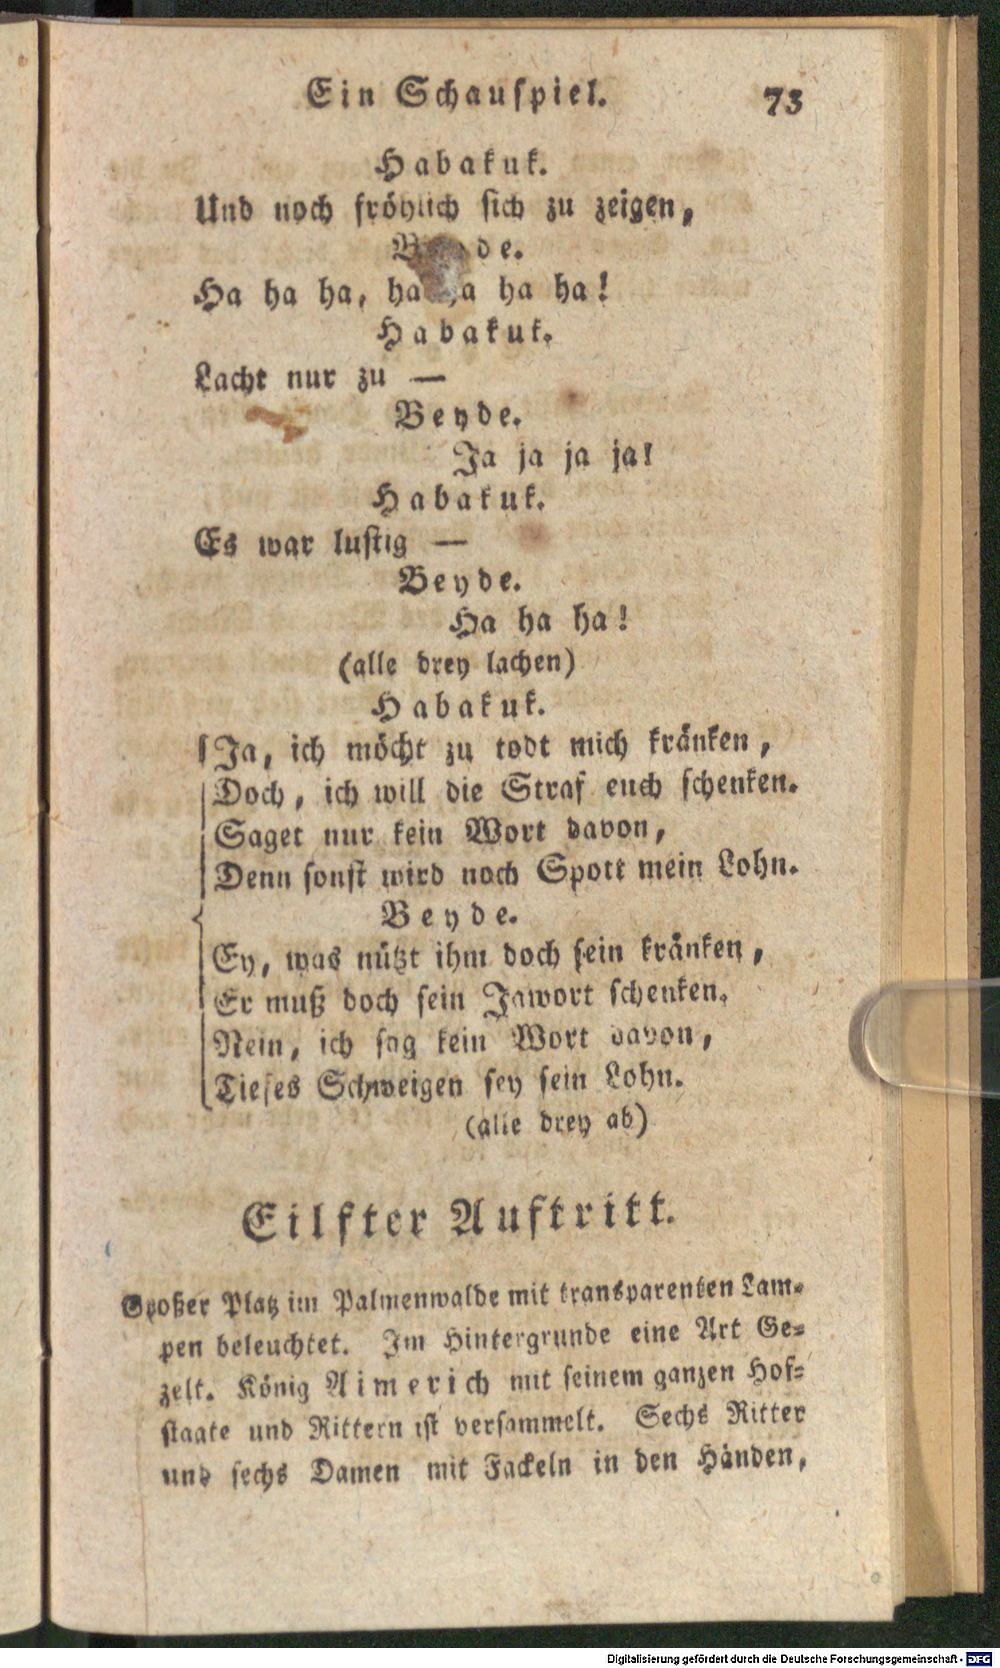 Ein Schauspiel. 73
Habakuk.
Und noch fröhlich sich zu zeigen,
Beyde.
Ha ha ha, ha ha ha ha!
Habakuk.
Lacht nur zu —
Beyde.
Ja ja ja ja!
Habakuk.
Es war lustig —
Beyde.
Ha ha ha!
(alle drey lachen)
Habakuk.
Ja, ich möcht zu todt mich kränken,
Doch, ich will die Straf euch schenken.
Saget nur kein Wort davon,
Denn sonst wird noch Spott mein Lohn.
Beyde.
Ey, was nützt ihm doch sein kränken,
Er muß doch sein Jawort schenken.
Nein, ich sag kein Wort davon,
Tiefes Schweigen sey sein Lohn.
(alle drey ab)
Eilfter Auftritt.
Großer Platz im Palmenwalde mit transparenten Lam-
pen beleuchtet. Im Hintergrunde eine Art Ge-
zelt. König Aimerich mit seinem ganzen Hof-
staate und Rittern ist versammelt. Sechs Ritter
und sechs Damen mit Fackeln in den Händen,
Digitalisierung gefördert durch die Deutsche Forschungsgemeinschaft - DFG